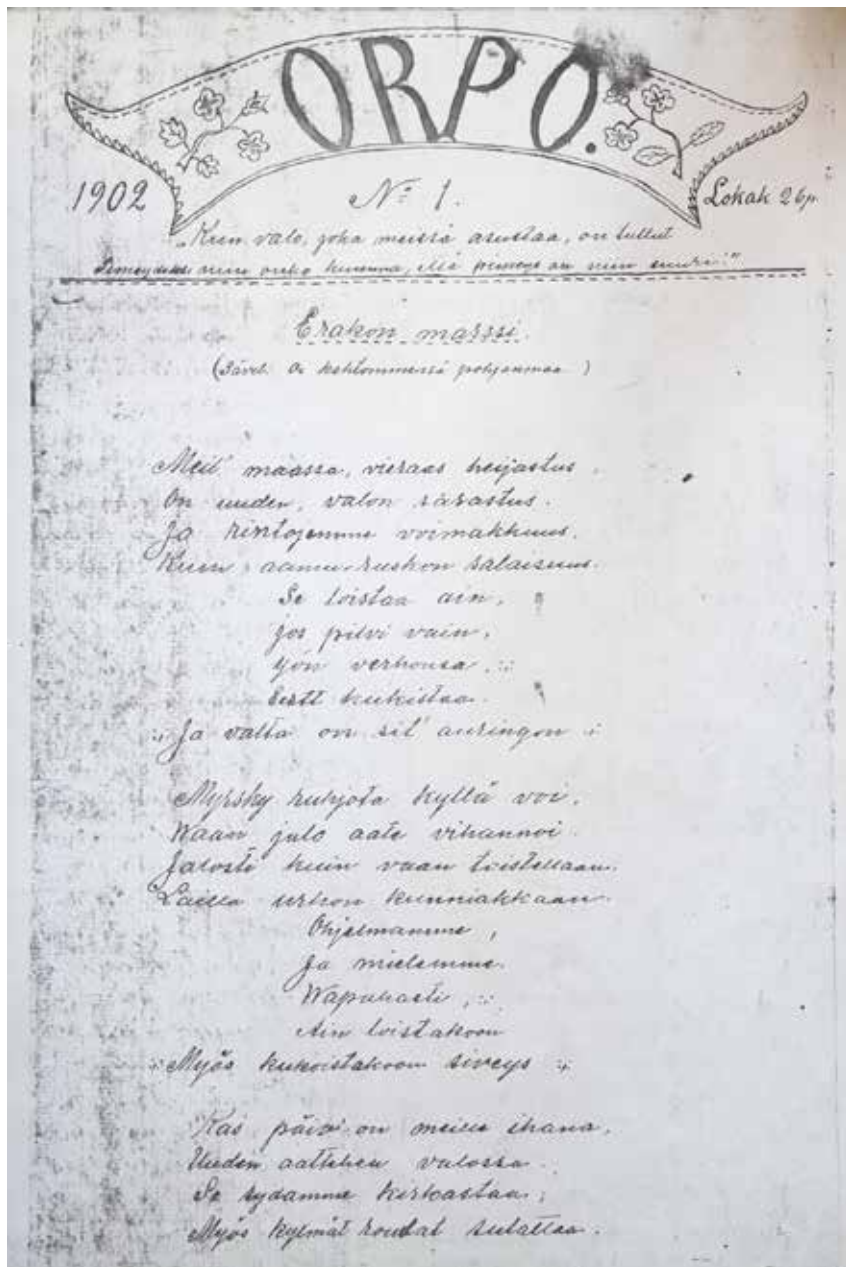 ORPO.
1902 No 1. Lokak 26p.
"Kun valo, joka meissä asustaa, on tullut
pimeydeksi niin onko kumma, että pimeys on niin suuri!"
Erakon marssi.
(Sävel. Oi kehtommessä pohjanmaa)
Meil' maassa, vieraas heijastus.
On uuden, valon sarastus.
Ja rintojemme voimakkuus.
Kuin aamu-ruskon salaisuus.
Se loistaa ain,
Jos pilvi vain,
Yön verhonsa ,:
Eestt kukistaa.
,: Ja valta on sil' auringon :,
Myrsky ruhjota kyllä voi,
Waan jalo aate vihannoi
Jalosti kuin vaan toistellaan.
Lailla urhon kunniakkaan.
Ohjelmamme,
Ja mielemme.
Wapahasti ,:
Ain loistakoon
,: Myös kukoistakoon siveys :,
Kas päivä on meille ihana,
Uuden aattehen valossa.
Se sydamme kirkastaa,
Myös kylmät roudat sulattaa.